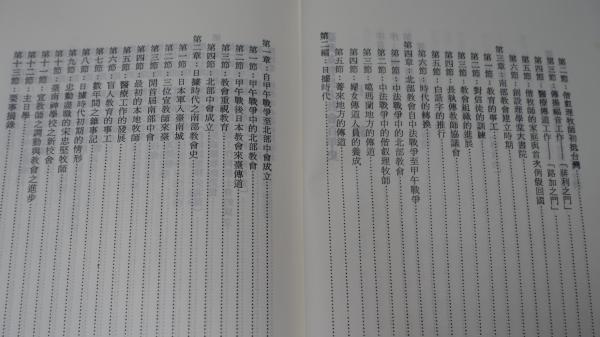 第二節：偕叡理牧師初抵台灣
第三節：傳揚福音工作——「緋利之門」
第四節：醫療傳道工作——「路加之門」
第五節：偕牧師的家庭與首次例假回國
第六節：創設理學堂大書院
第三章：南部教會建立時期
第一節：教育的事工
第二節：對信徒的訓練
第三節：教會組織的進展
第四節：長執傳教師協議會
第五節：白話字的推行
第六節：時代的轉換
第四章：北部教會自中法戰爭至甲午戰爭
第一節：中法戰爭中的北部教會
第二節：中法戰爭中的偕叡理牧師
第三節：噶瑪蘭地方的傳道
第四節：婦女傳道人員的養成
第五節：養來地方的傳道
第二編：日據時代
第一章：自甲午戰爭至北部中會成立
第一節：甲午戰爭中的北部教會
第二節：甲午戰後日本教會來臺傳道
第三節：教會重視教育
第四節：北部中會成立
第二章：日據時代之南部教會史
第一節：日本軍入臺南城
第二節：三位宣教師來臺
第三節：開首屆南部中會
第四節：最初的本地牧師
第五節：醫療工作的發展
第六節：盲人教育的事工
第七節：數年間之雜事記
第八節：日據時代初期的情形
第九節：忠勤盡職的宋忠堅牧師
第十節：臺南神學校之新校舍
第十一節：宣教師之調動與教會之進步
第十二節：主日學
第十三節：要事摘錄